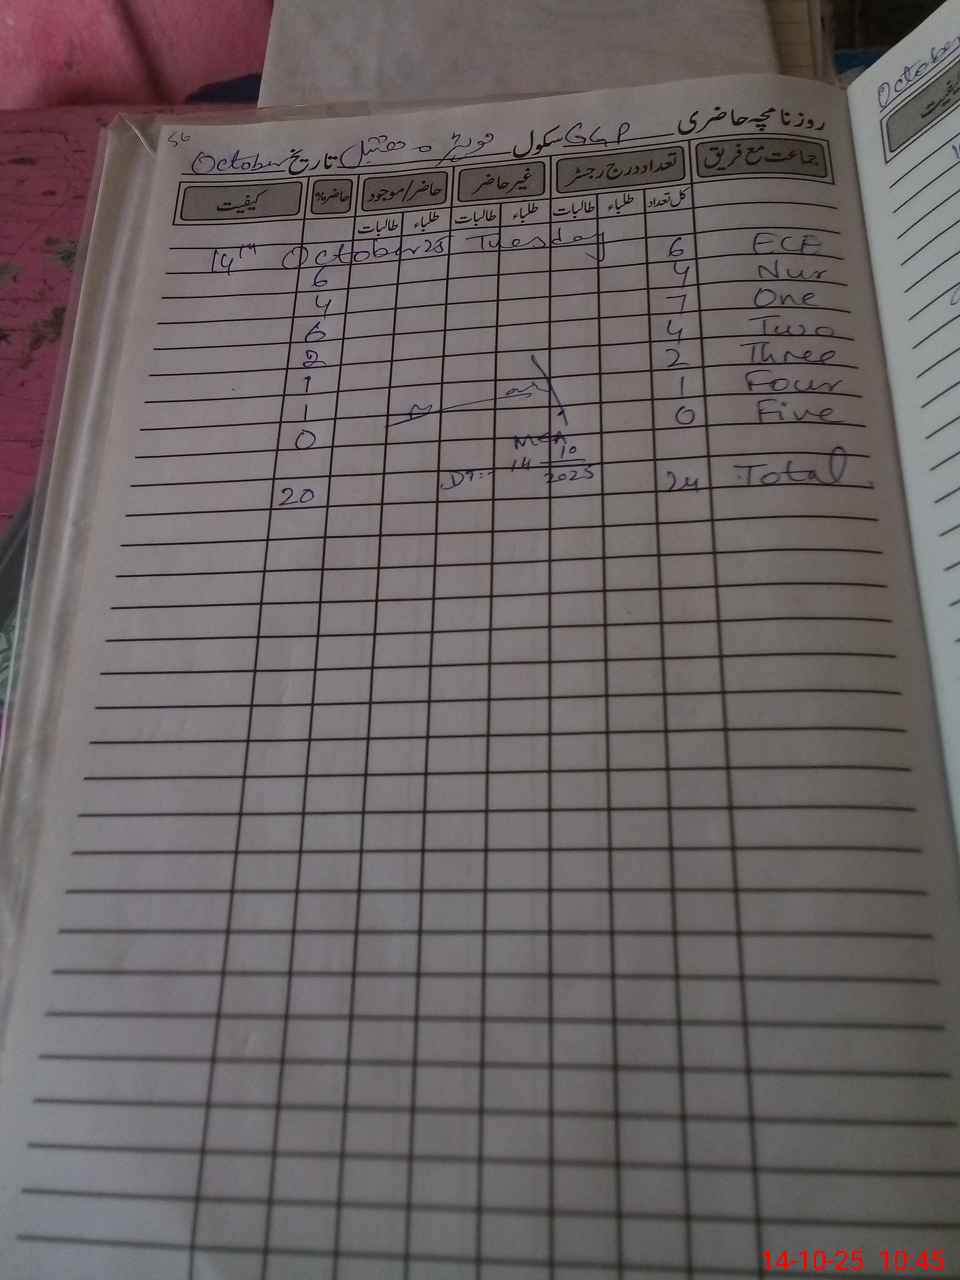 56
روزنامچہ حاضری GGP سکول تاریخ October
جماعت مع فریق تعداد درج رجسٹر غیر حاضر حاضر/موجود حاضر% کیفیت
کل تعداد طلباء طالبات طلباء طالبات طلباء طالبات
14th October 25 Tuesday
ECE 6 6
Nur 4 4
One 7 6
Two 4 2
Three 2 1
Four 1 1
Five 0 0
MEA
DT:- 14 10 2025
Total 24 20
October
کیفیت
14-10-25 10:45